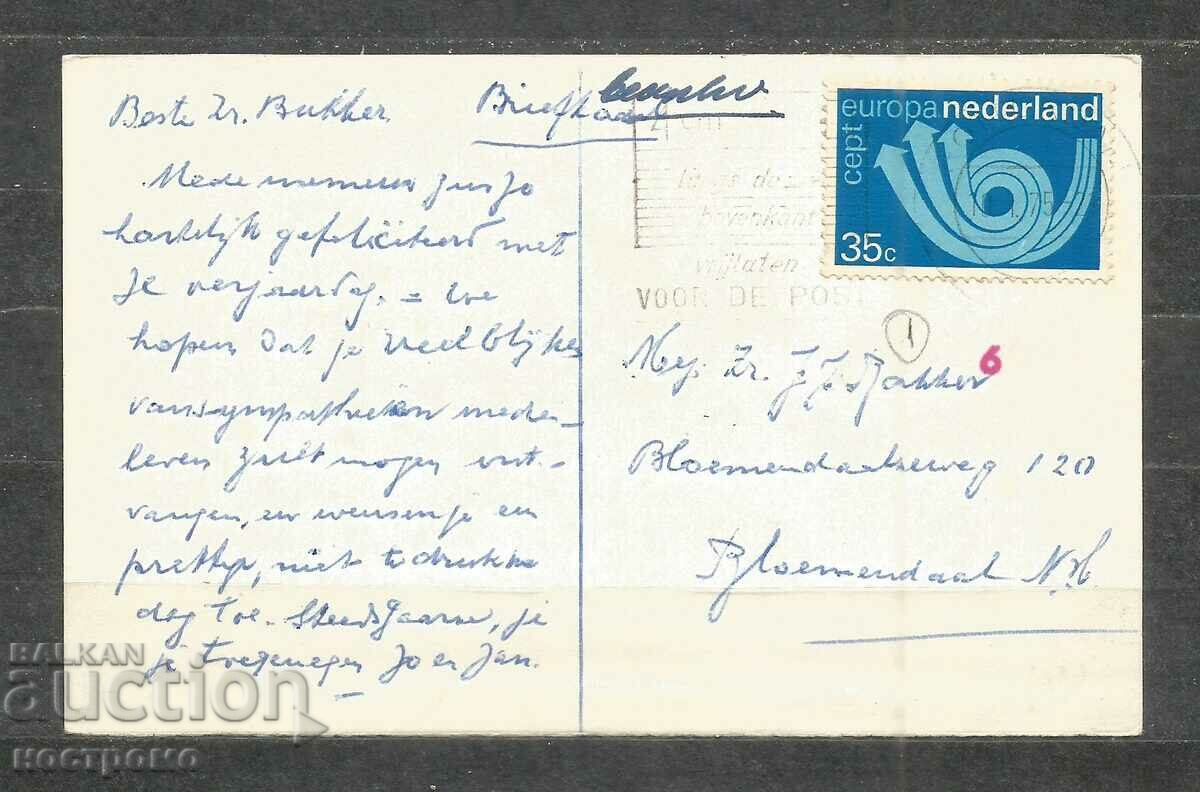 Beste Zr. Bakker
Briefkaart
Mede namens zus Jo
hartelijk gefeliciteerd met
je verjaardag. - We
hopen dat je veel blijken
van sympathie en mede-
leven zult mogen ont-
vangen, en wensen je een
prettige, niet te drukke
dag toe. Steeds gaarne, je
je toegenegen Jo en Jan.
4 cm
langs de
bovenkant
vrijlaten
VOOR DE POST
75
cept
europa nederland
35c
1
6
Mej. Zr. J. J. Bakker
Bloemendaalseweg 120
Bloemendaal N.H.
BALKAN
auction
КОСТРОМО